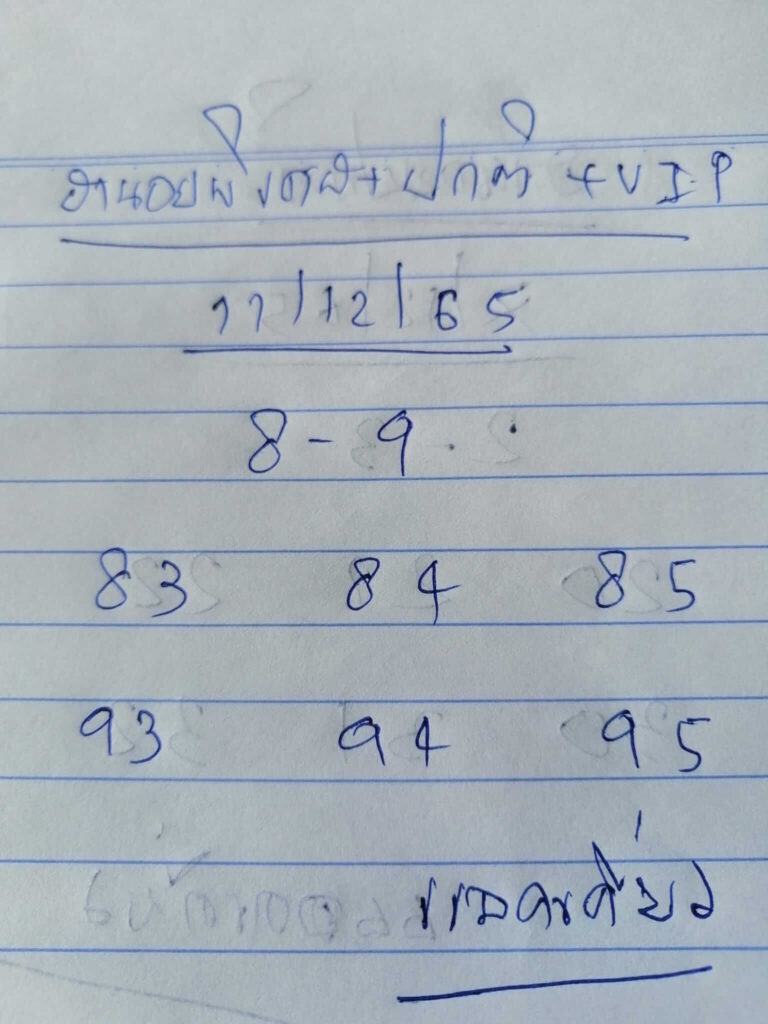 ฮานอยพิเศษ+ปกติ +VIP
11/12/65
8-9
83 84 85
93 94 95